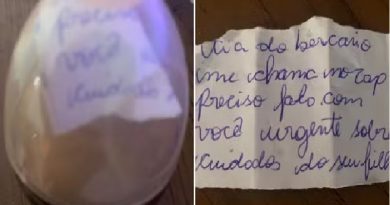 preciso
você
cuidados
Tia do bercario
me chama no zap
preciso falo com
você urgente sobre
cuidados do seu filh